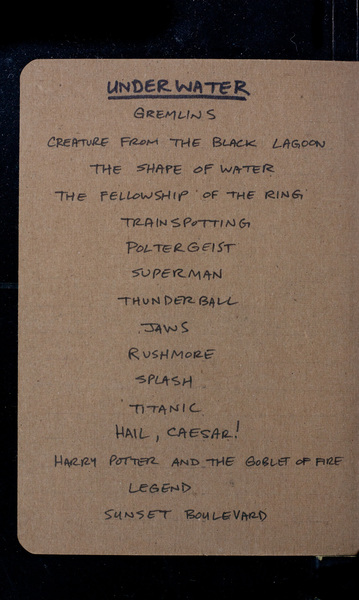 UNDERWATER
GREMLINS
CREATURE FROM THE BLACK LAGOON
THE SHAPE OF WATER
THE FELLOWSHIP OF THE RING
TRAINSPOTTING
POLTERGEIST
SUPERMAN
THUNDERBALL
JAWS
RUSHMORE
SPLASH
TITANIC
HAIL, CAESAR!
HARRY POTTER AND THE GOBLET OF FIRE
LEGEND
SUNSET BOULEVARD